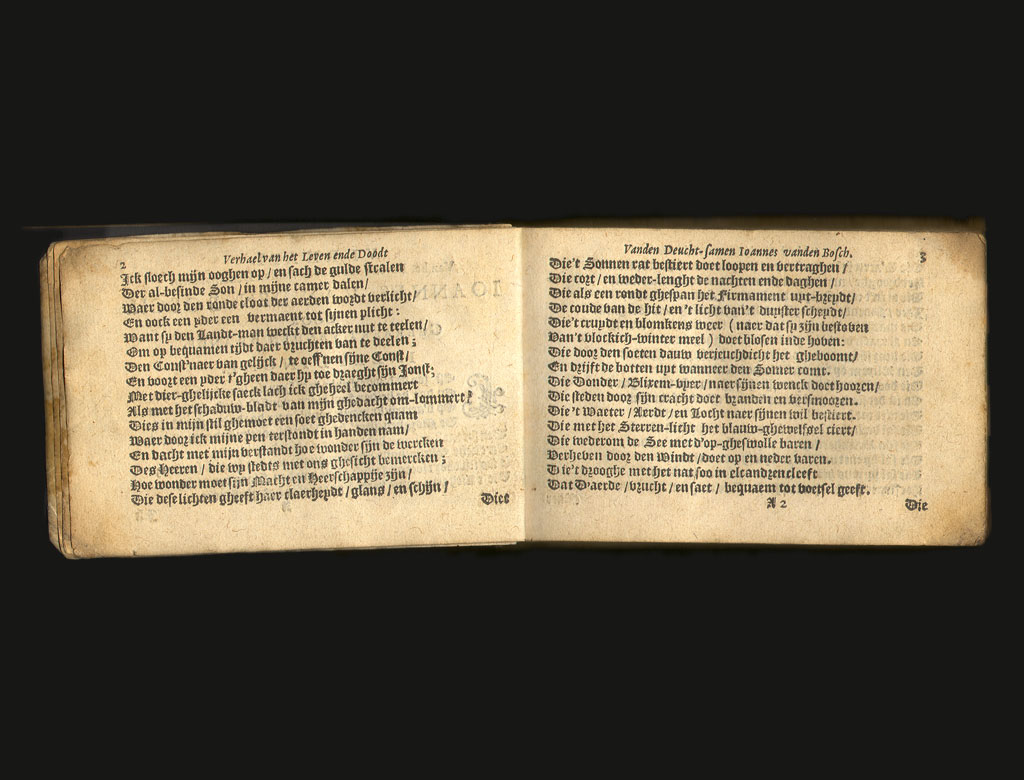 2
Verhael van het Leven ende Doodt
Ick sloech mijn ooghen op / en sach de gulde stralen
Der al-besinde Son / in mijne camer dalen /
Waer door den ronde cloot der aerden wordt verlicht /
En oock een yder een vermaent tot sijnen plicht :
Want sy den Landt-man weckt den acker nut te teelen /
Om op bequamen tijdt daer vruchten van te deelen ;
Den Const'naer van gelijck / te oeff'nen sijne Const /
En voort een yder t'gheen daer hy toe draeght sijn Jonst ;
Met dier-ghelijcke saeck lach ick gheheel becommert
Als met het schaduw-bladt van mijn ghedacht om-lommert :
Dies in mijn stil ghemoet een soet ghedencken quam
Waer door ick mijne pen terstondt in handen nam /
En dacht met mijn verstandt hoe wonder sijn de wercken
Des Heeren / die wy stedts met ons ghesicht bemercken ;
Hoe wonder moet sijn Macht en Heerschappije zijn /
Die dese lichten gheeft haer claerheydt / glans / en schijn /
Die't
Vanden Deucht-samen Ioannes vanden Bosch.
3
Die't Sonnen rat bestiert doet loopen en vertraghen /
Die cort / en weder-lenght de nachten ende daghen /
Die als een rondt ghespan het Firmament uyt-breydt /
De coude van de hit / en 't licht van't duyster scheydt /
Die't cruydt en blomkens weer ( naer dat sy zijn bestoven
Van't vlockich-winter meel ) doet blosen inde hoven :
Die door den soeten dauw verjeuchdicht het gheboomt /
En drijft de botten uyt wanneer den Somer comt.
Die Donder / Blixem-vyer / naer sijnen wenck doet hooren /
Die steden door sijn cracht doet branden en versmooren.
Die 't Waeter / Aerdt / en Locht naer sijnen wil bestiert.
Die met het Sterren-licht het blauw-ghewelfsel ciert /
Die wederom de See met d'op-gheswolle baren /
Verheven door den Windt / doet op en neder varen.
Die't drooghe met het nat soo in elcandren cleeft
Dat D'aerde / vrucht / en saet / bequaem tot voetsel geeft.
A 2
Die